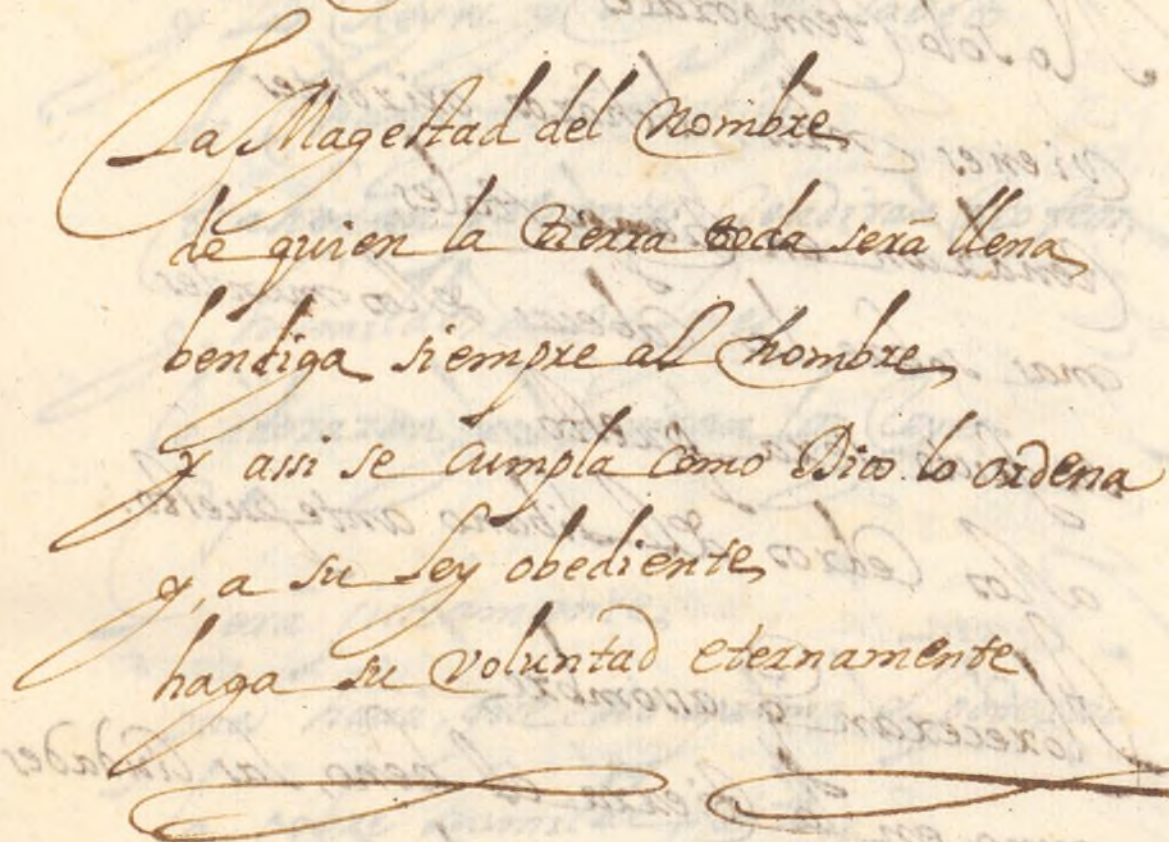 La Magestad del nombre
de quien la tierra toda será llena
bendiga siempre al hombre
y assi se cumpla como Dios lo ordena
y, a su Ley obediente
haga su voluntad eternamente